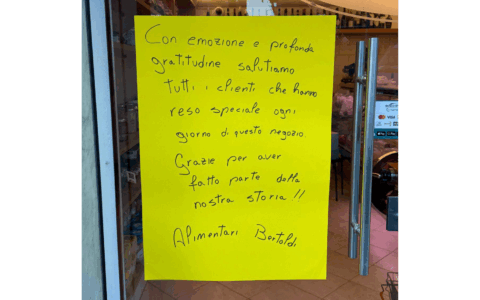 Con emozione e profonda
gratitudine salutiamo
tutti i clienti che hanno
reso speciale ogni
giorno di questo negozio
Grazie per aver
fatto parte della
nostra storia!!
Alimentari Bertoldi
VISA